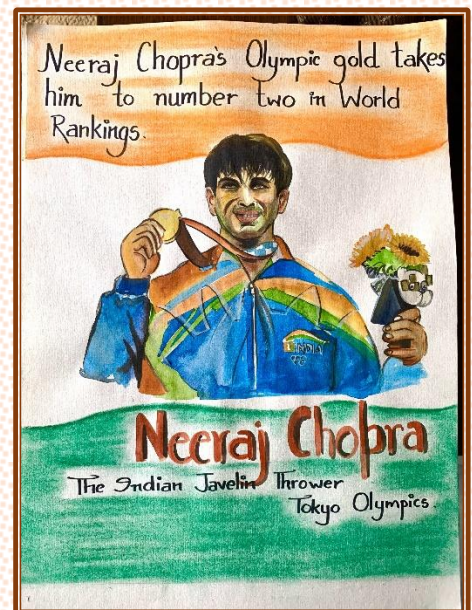 Neeraj Chopra's Olympic gold takes
him to number two in World
Rankings.
Neeraj Chopra
The Indian Javelin Thrower
Tokyo Olympics.